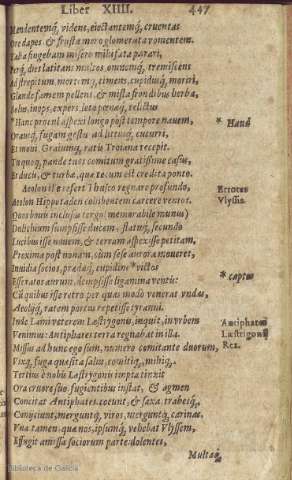 Liber XIIII. 447
Mandentemq́, vident, eiectantemq́, cruentas
Ore dapes & frusta mero glomerata vomentem.
Talia fingebam misero mihi fata parari,
Perq́, dies latitans multos, omnemq́, tremiscens
Ad strepitum, mortemq́, timens, cupidusq́, moriri,
Glande famem pellens, & mista frondibus herba,
Solus, inops, expers, leto pœnaq́, relictus
*Hanc procul aspexi longo post tempore nauem, * Hanc
Oraui fugam gestu, ad littusq́, cucurri,
Et moui. Graiumq́, ratis Troiana recepit.
Tu quoq, pande tuos comitum gratissime casus,
Et ducis, & turbæ, quæ tecum est credita ponto.
Aeolon ille refert Thusco regnare profundo, Errores
Aeolon Hippotaden cohibentem carcere ventos. Vlyssis.
Quos bouis inclusos tergo (memorabile munus)
Dulichium sumpsisse ducem, flatuq́, secundo
Lucibus isse nouem, & terram aspexisse petitam,
Proxima post nonam, cum sese aurora moueret,
Inuidia socios, prædæq́, cupidine *victos * captos
Esse ratos aurum, dempsisse ligamina ventis:
Cum quibus isse retro per quas modo venerat vndas,
Aeolijq́, ratem portus repetisse tyranni.
Inde Lami veterem Læstrygonis, inquit, in vrbem Antiphates
Venimus: Antiphates terra regnabat in illa. Læstrigonũ
Missus ad hunc ego sum, numero comitante duorum, Rex.
Vixq́, fuga quæsita salus, comitiq́, mihiq́,
Tertius è nobis Læstrygonis impia tinxit
Ora cruore suo. fugientibus instat, & agmen
Concitat Antiphates. coeunt, & saxa, trabesq́,
Conijciunt, merguntq́, viros, merguntq́, carinas.
Vna tamen, quæ nos, ipsumq́, vehebat Vlyssem,
Effugit. amissa sociorum parte dolentes,
Multaq́,
Biblioteca de Galicia